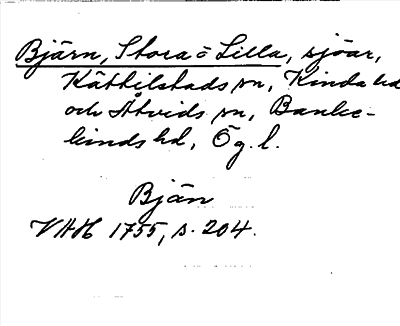 Bjärn, Stora o Lilla, sjöar,
Kättilstads sn, Kinda hd
och Åtvids sn, Banke-
kinds hd, Ög. l.
Bjän
VAH 1755, s. 204.